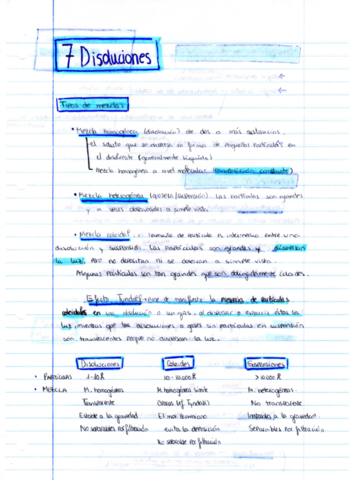 7 Disoluciones
Tipos de mezclas
• Mezcla homogénea (disolución) de dos o más sustancias.
el soluto que se encuentra en forma de pequeñas partículas en
el disolvente (generalmente líquido)
mezcla homogénea a nivel molecular (composición constante)
• Mezcla heterogénea (grosera/suspensión). Las partículas son grandes
y a veces observables a simple vista.
• Mezcla coloidal: tamaño de partícula es intermedio entre una
disolución y suspensión. Las partículas son grandes y dispersan
la luz. Pero no depositan ni se aprecian a simple vista.
Algunas partículas son tan grandes que son
Efecto Tyndall: pone de manifiesto la presencia de partículas
coloidales en una disolución o un gas, al dispersar
luz, mientras que las disoluciones o gases sin partículas en suspensión
son translúcidos porque no dispersan la luz.
Disoluciones Coloides Suspensiones
• PARTÍCULAS 1-10 Å 10-10.000 Å >10.000 Å
• MEZCLA M. homogénea M. homogénea límite M. heterogénea
Transparente (ef. Tyndall) No transparente
Estable a la gravedad El mov. browniano Inestables a la gravedad
No separable por filtración evita la deposición Separables por filtración
No separable por filtración